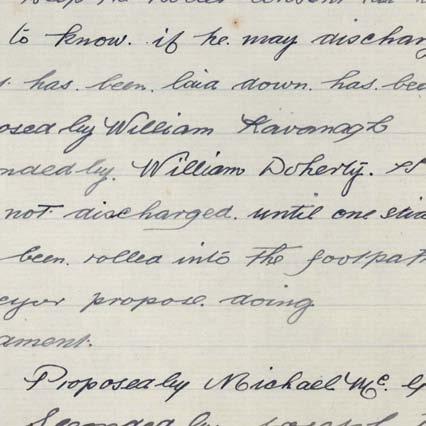 to know. if he. may discharg
has been. laid down. has bee
osed by William Kavanagh
nded by. William Doherty.
not. discharged. until one
been. rolled into the footpath
eyor propose. doing
ament.
Proposed by Michael Mc.
Seconded by Joseph